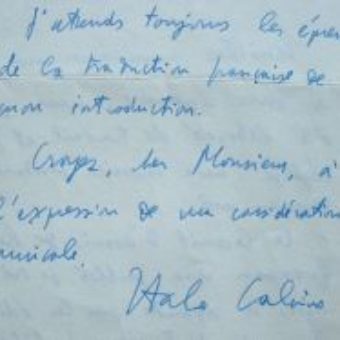 J'attends toujours les épreu
de la traduction française de
mon introduction.
Croyez, cher Monsieur, à
l'expression de ma considération
amicale.
Italo Calvino